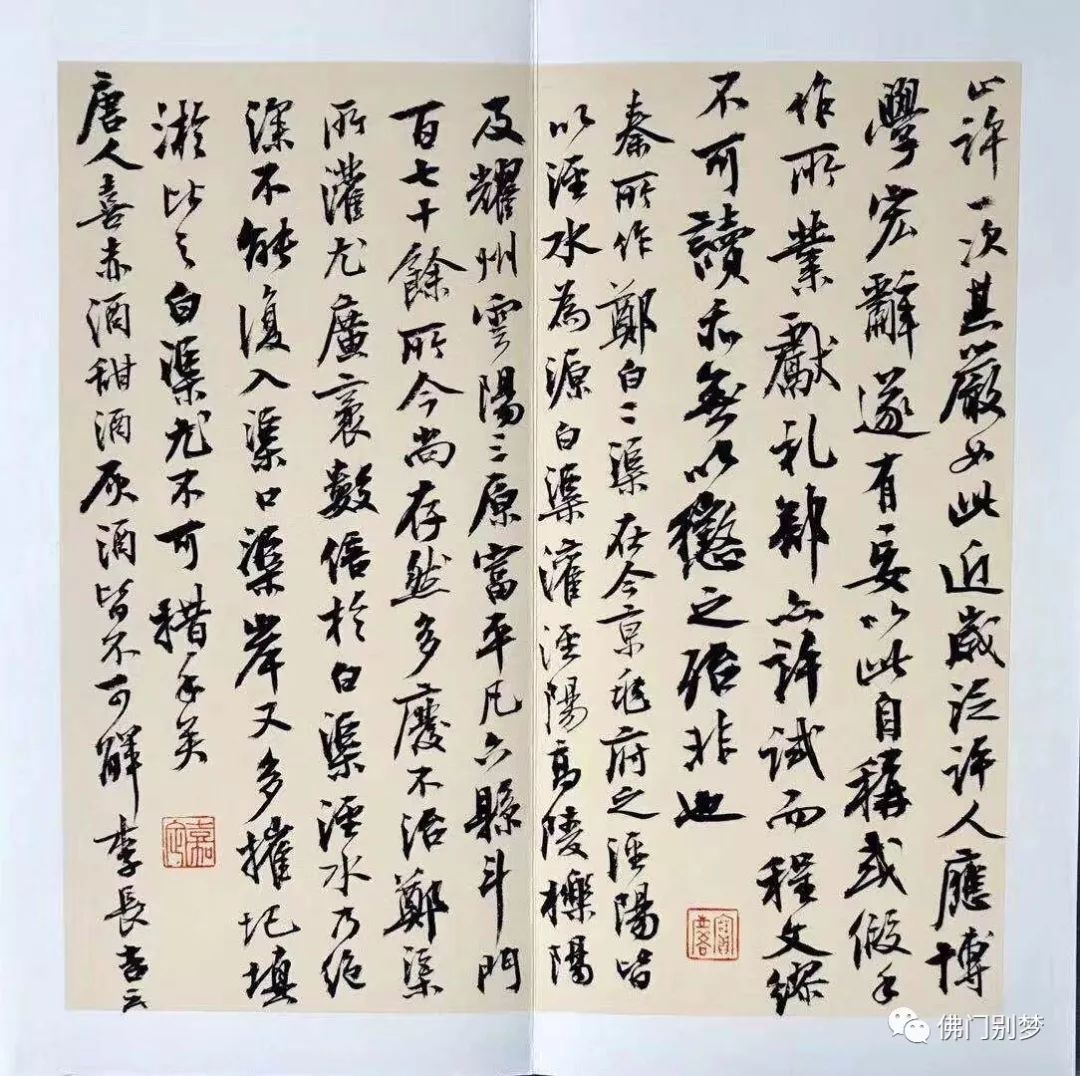 止许一次其嚴如此近歲泛许人應博
學宏辭遂有妄以此自稱或假手
作所業獻礼部亦许试而程文缪
不可讀亦無以懲之殆非也
秦所作鄭白二渠在今京兆府之涇陽皆
以涇水為源白渠灌涇陽高陵櫟陽
及耀州雲陽三原富平凡六縣斗門
百七十餘所今尚存然多廢不治鄭渠
所灌尤廣袤數倍於白渠涇水乃絶
深不能復入渠口渠岸又多摧圮填
淤比之白渠尤不可措手矣
唐人喜赤酒甜酒灰酒皆不可解李長吉云
佛门别梦